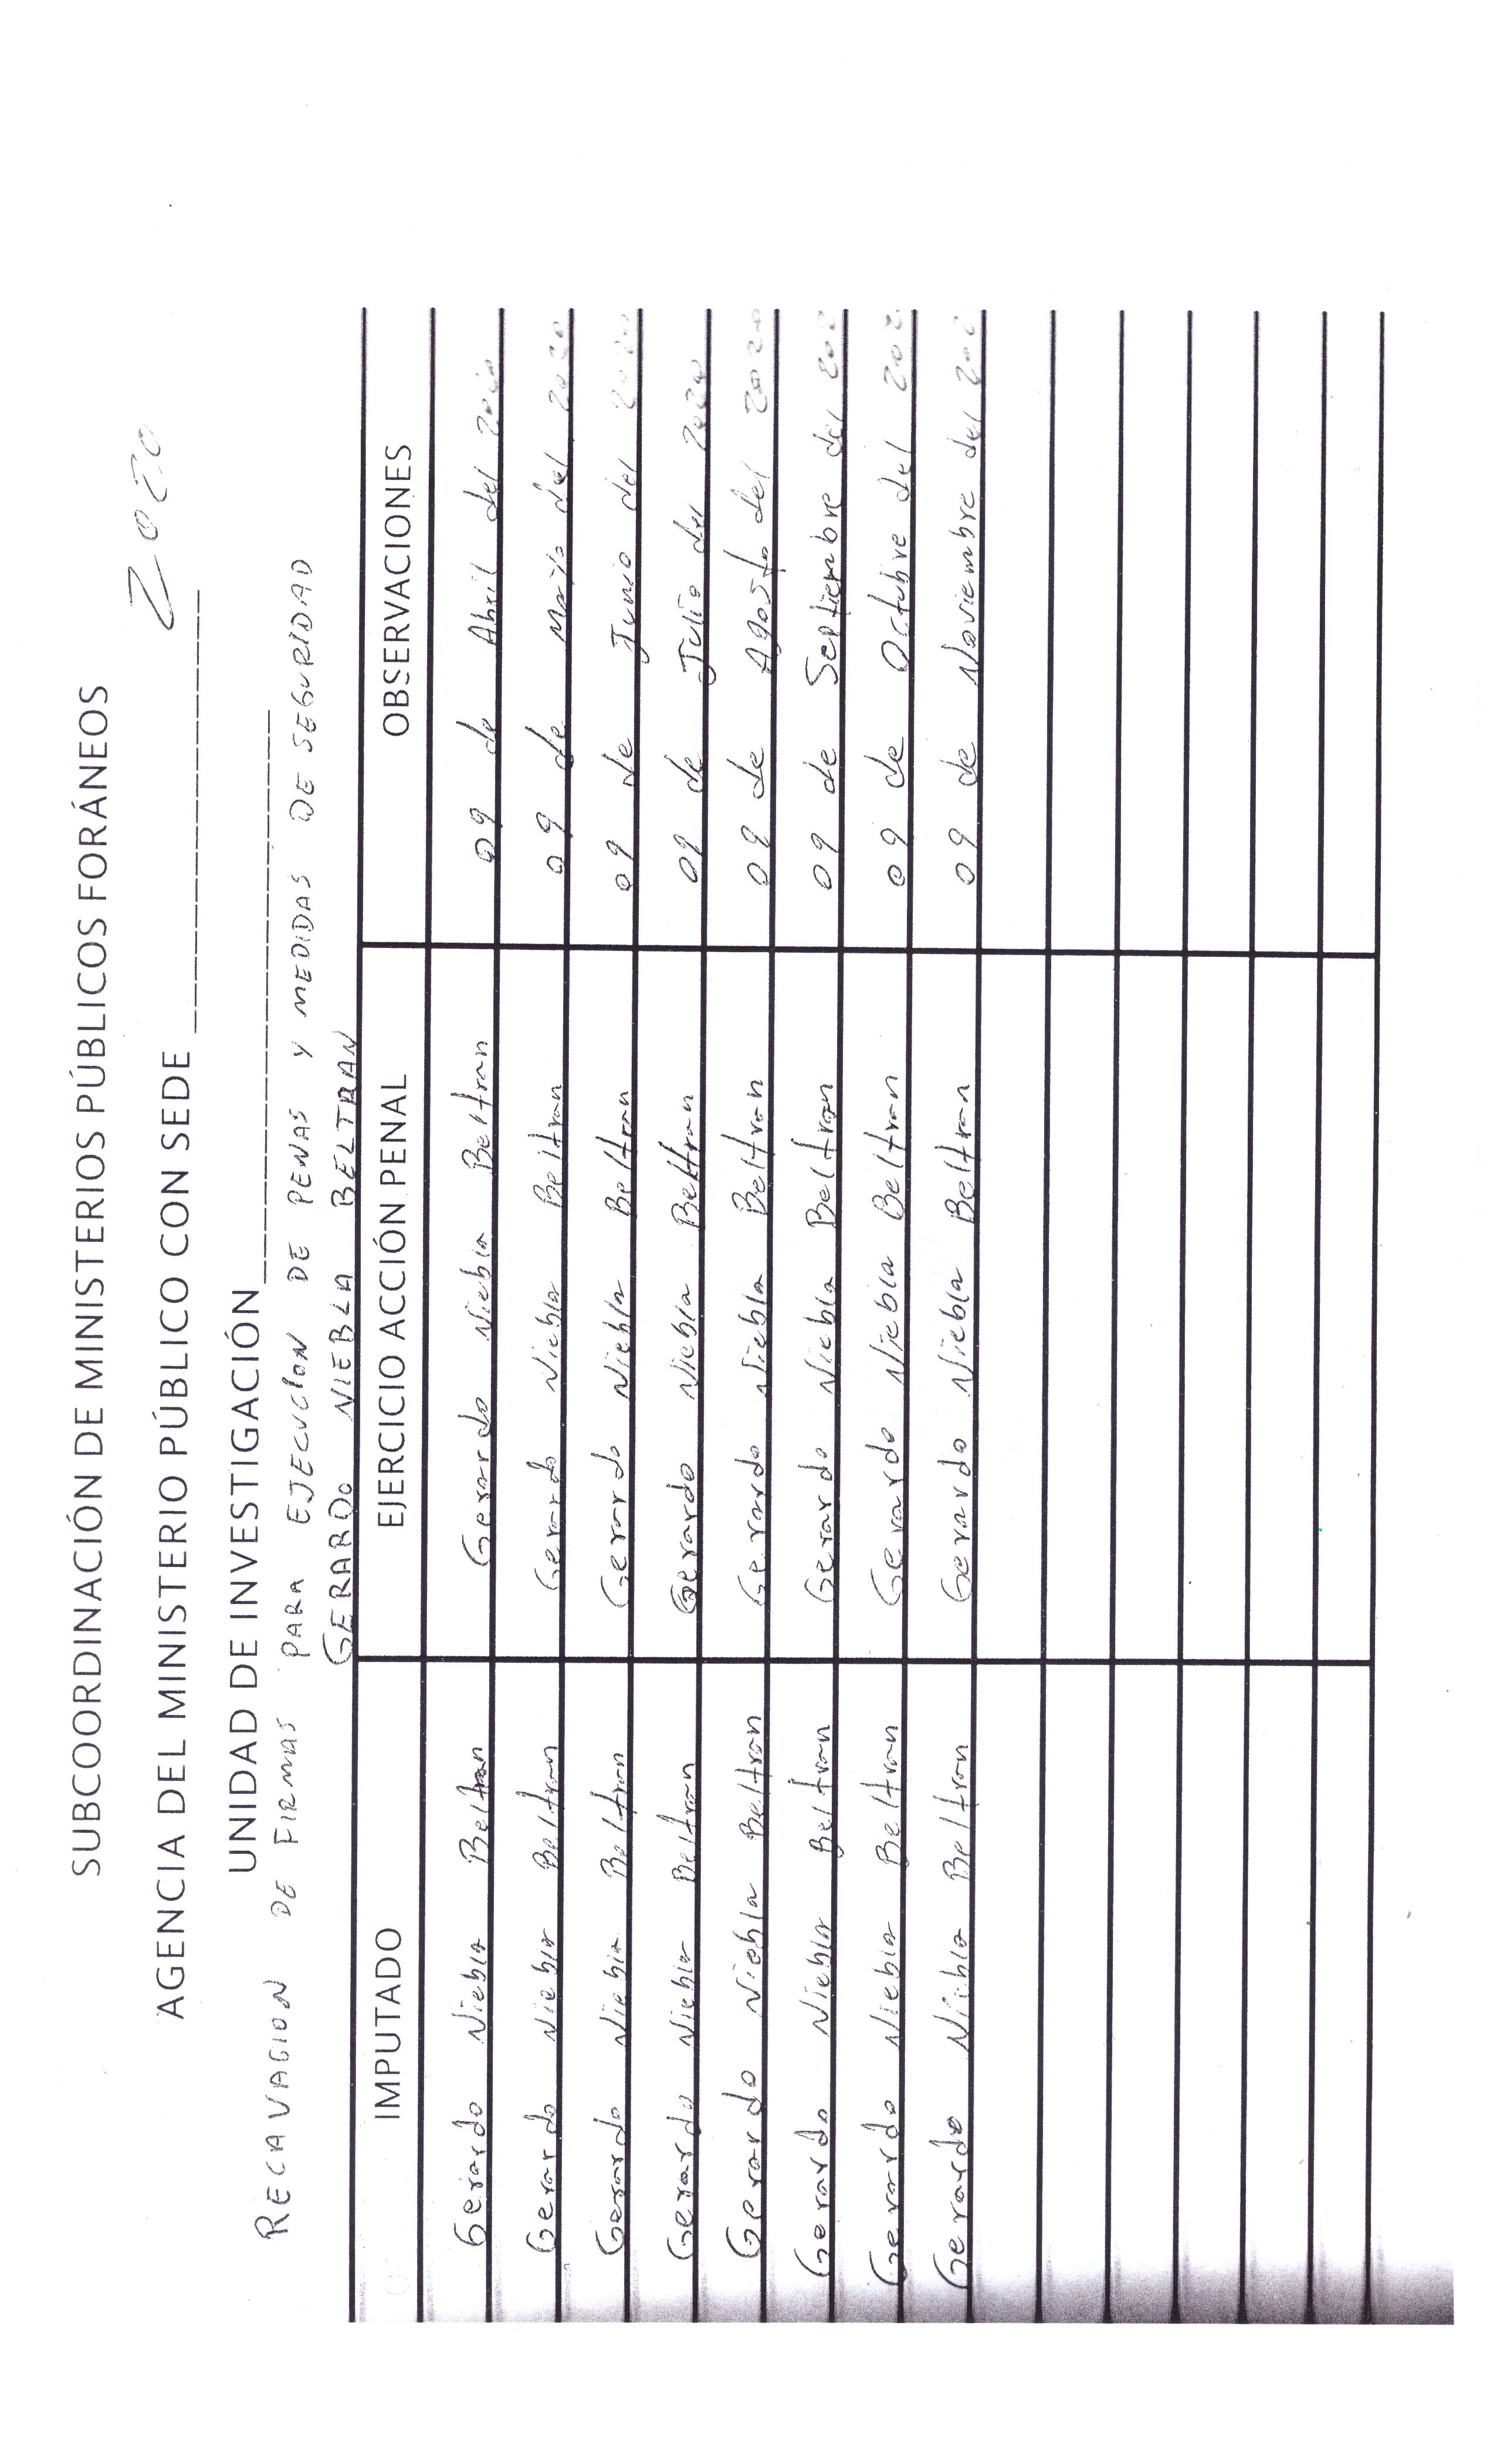 SUBCOORDINACIÓN DE MINISTERIOS PÚBLICOS FORÁNEOS
AGENCIA DEL MINISTERIO PÚBLICO CON SEDE 2020
UNIDAD DE INVESTIGACIÓN
RECAVACION DE FIRMAS PARA EJECUCION DE PENAS Y MEDIDAS DE SEGURIDAD
GERARDO NIEBLA BELTRAN
IMPUTADO EJERCICIO ACCIÓN PENAL OBSERVACIONES
Gerardo Niebla Beltran Gerardo Niebla Beltran 09 de Abril del 2020
Gerardo Niebla Beltran Gerardo Niebla Beltran 09 de Mayo del 2020
Gerardo Niebla Beltran Gerardo Niebla Beltran 09 de Junio del 2020
Gerardo Niebla Beltran Gerardo Niebla Beltran 09 de Julio del 2020
Gerardo Niebla Beltran Gerardo Niebla Beltran 09 de Agosto del 2020
Gerardo Niebla Beltran Gerardo Niebla Beltran 09 de Septiembre del 202
Gerardo Niebla Beltran Gerardo Niebla Beltran 09 de Octubre del 202
Gerardo Niebla Beltran Gerardo Niebla Beltran 09 de Noviembre del 202